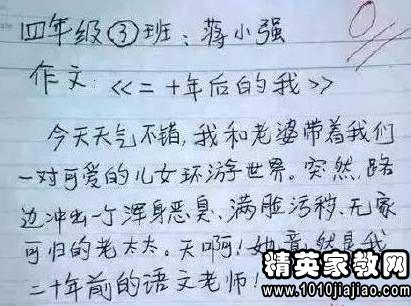 四年级③班：蒋小强
0
作文：<<二十年后的我>>
今天天气不错，我和老婆带着我们
一对可爱的儿女环游世界。突然，路
边冲出一个浑身恶臭、满脸污秽、无家
可归的老太太。天啊！她竟然是我
二十年前的语文老师！
精英家教网
www.1010jiajiao.com